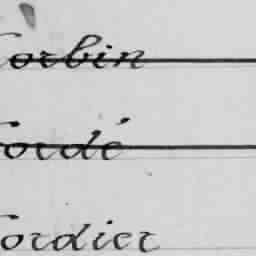 Corbin
Cordé
Cordier